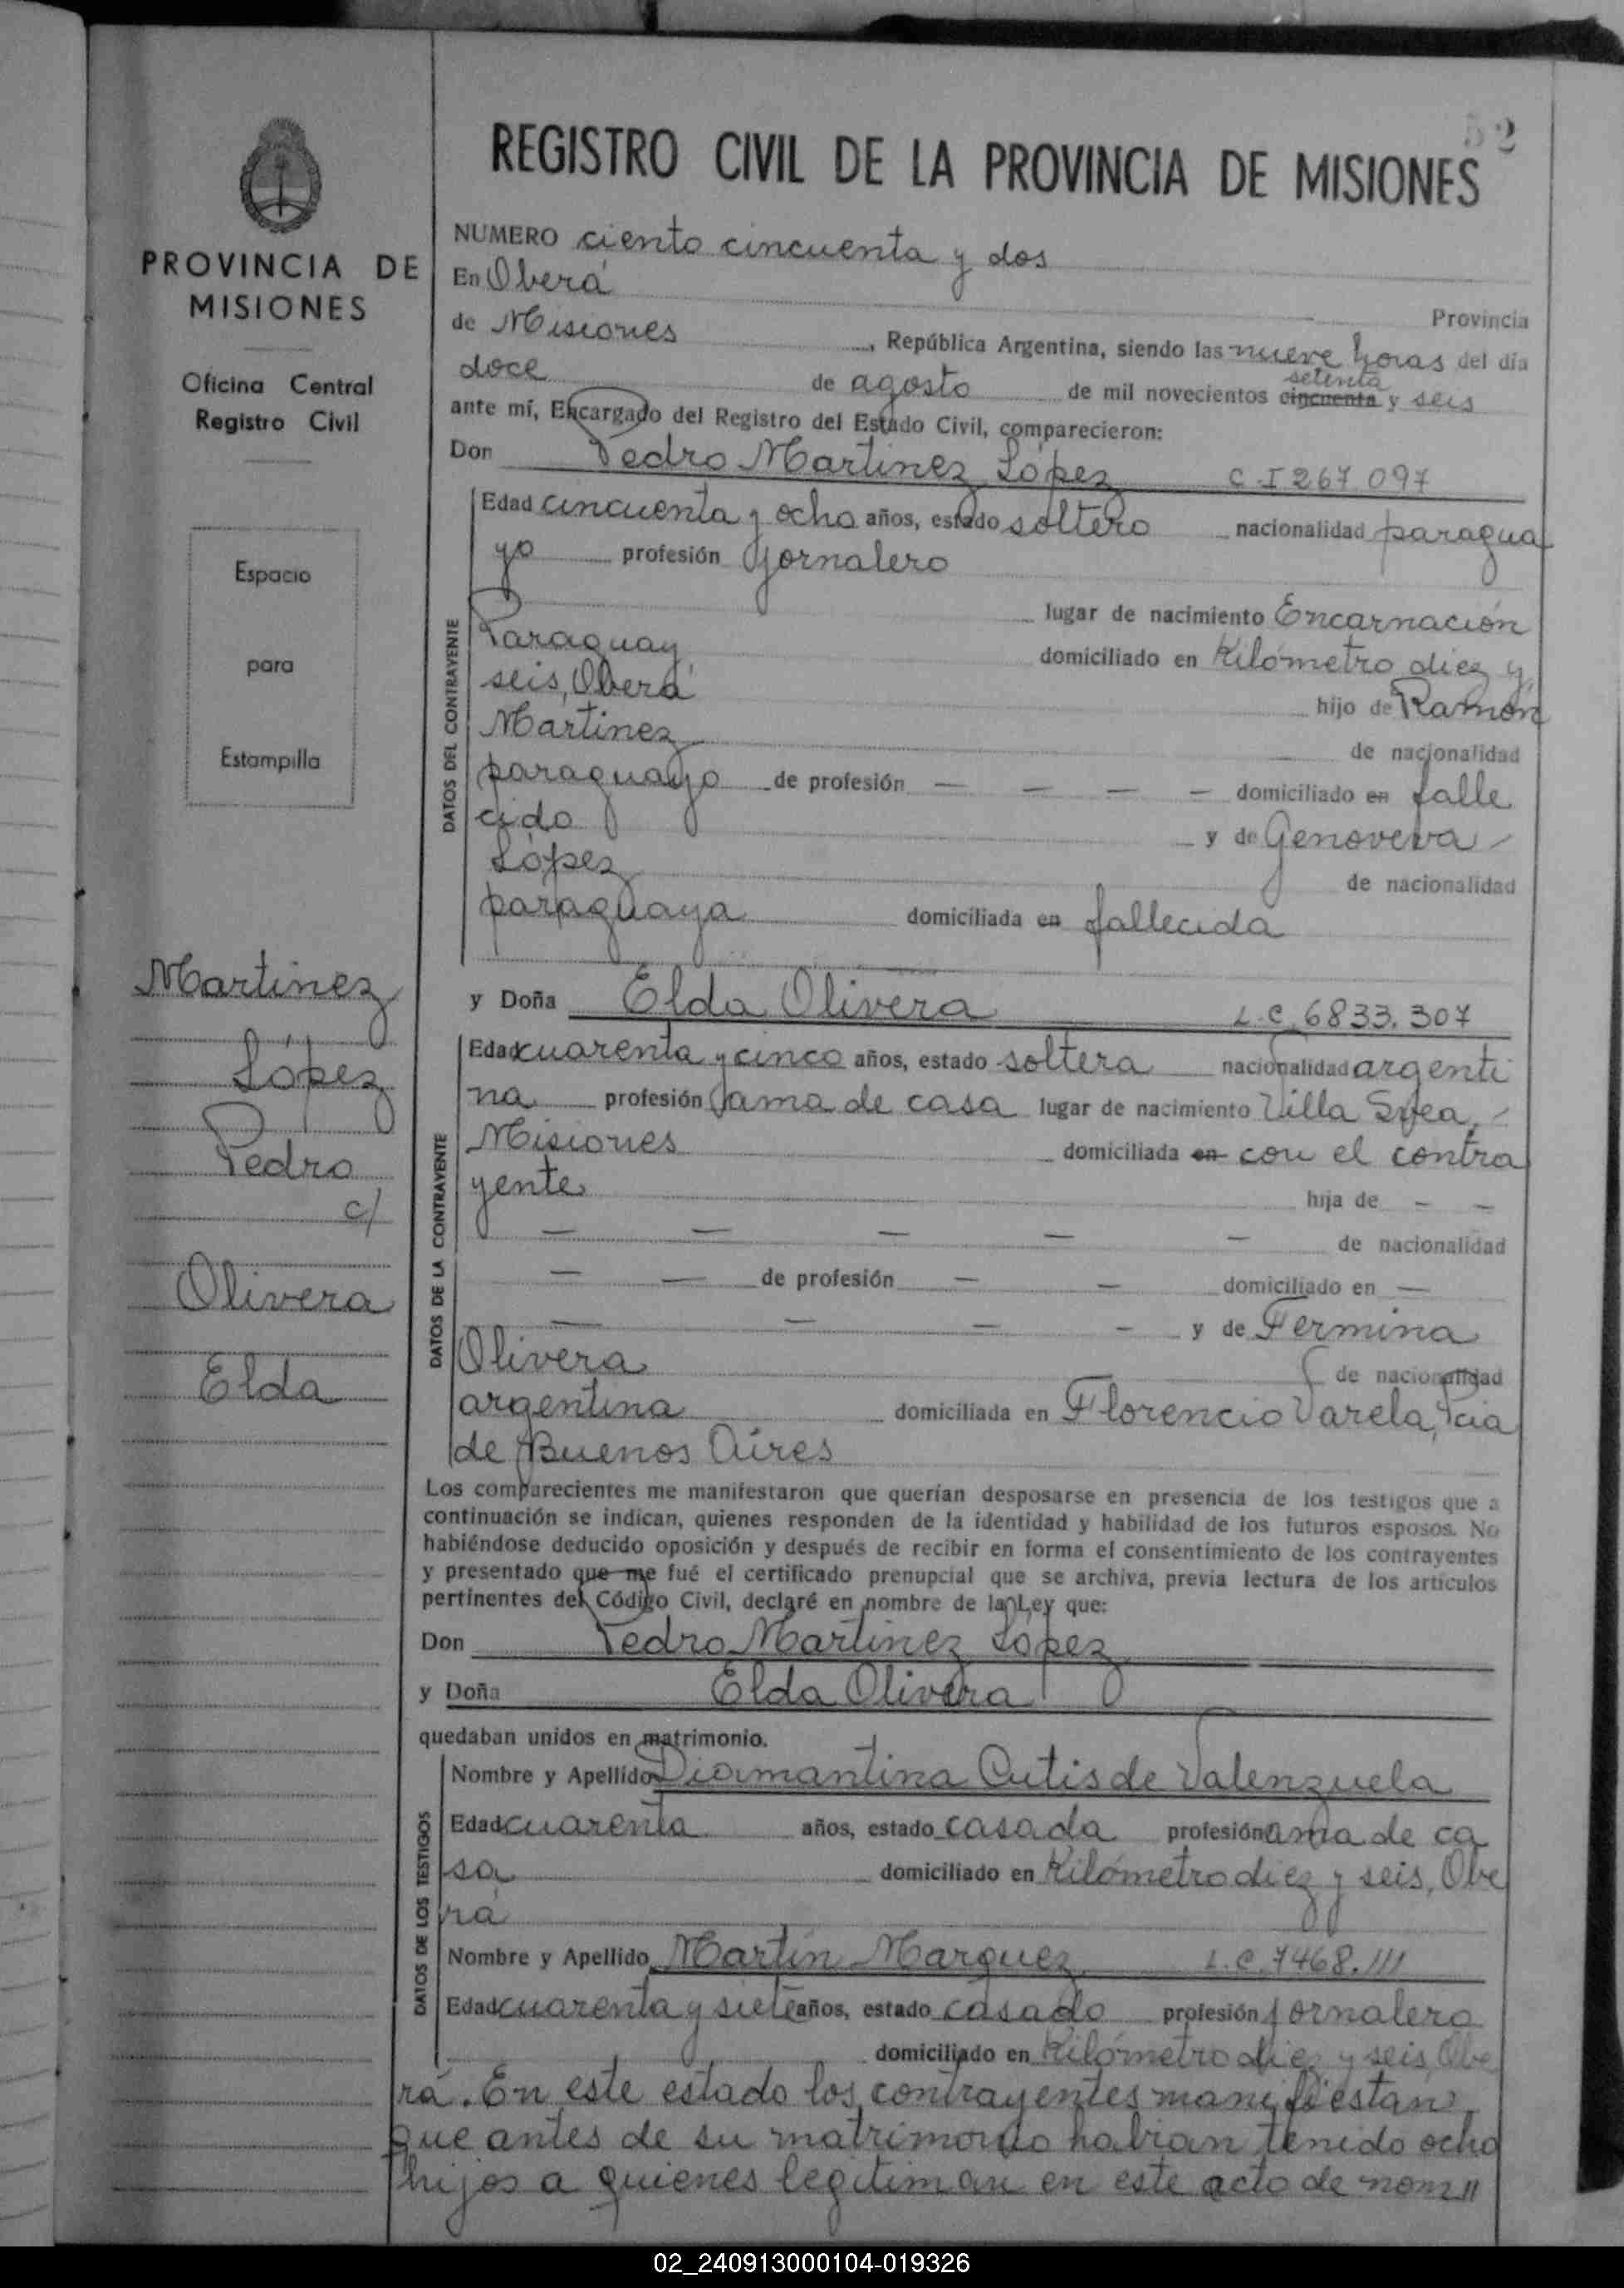 52
REGISTRO CIVIL DE LA PROVINCIA DE MISIONES
PROVINCIA DE
MISIONES
Oficina Central
Registro Civil
Espacio
para
Estampilla
Martinez
López
Pedro
c/
Olivera
Elda
NUMERO ciento cincuenta y dos
En Oberá
Provincia
de Misiones, República Argentina, siendo las nueve horas del día
setenta
doce de agosto de mil novecientos cincuenta y seis
ante mí, Encargado del Registro del Estado Civil, comparecieron:
Don Pedro Martinez López C I 267.097
DATOS DEL CONTRAYENTE
Edad cincuenta y ocho años, estado soltero nacionalidad paragua
yo profesión jornalero
lugar de nacimiento Encarnación
Paraguay domiciliado en Kilómetro diez y
seis, Oberá hijo de Ramón
Martinez de nacionalidad
paraguayo de profesión — — — — domiciliado en falle
cido y de Genoveva
López de nacionalidad
paraguaya domiciliada en fallecida
y Doña Elda Olivera L.C. 6833.307
DATOS DE LA CONTRAYENTE
Edad cuarenta y cinco años, estado soltera nacionalidad argenti
na profesión ama de casa lugar de nacimiento Villa Svea,
Misiones domiciliada en con el contra
yente hija de — —
— — — — — de nacionalidad
— — de profesión — — domiciliado en —
— — — — y de Fermina
Olivera de nacionalidad
argentina domiciliada en Florencio Varela, Pcia
de Buenos Aires
Los comparecientes me manifestaron que querían desposarse en presencia de los testigos que a
continuación se indican, quienes responden de la identidad y habilidad de los futuros esposos. No
habiéndose deducido oposición y después de recibir en forma el consentimiento de los contrayentes
y presentado que me fué el certificado prenupcial que se archiva, previa lectura de los artículos
pertinentes del Código Civil, declaré en nombre de la Ley que:
Don Pedro Martinez López
y Doña Elda Olivera
quedaban unidos en matrimonio.
DATOS DE LOS TESTIGOS
Nombre y Apellido Diamantina Cutis de Valenzuela
Edad cuarenta años, estado casada profesión ama de ca
sa domiciliado en Kilómetro diez y seis, Obe
rá
Nombre y Apellido Martín Marquez L.C. 7468.111
Edad cuarenta y siete años, estado casado profesión jornalero
domiciliado en Kilómetro diez y seis, Obe
rá. En este estado los contrayentes manifiestan
que antes de su matrimonio habían tenido ocho
hijos a quienes legitiman en este acto de nom"
02_240913000104-019326